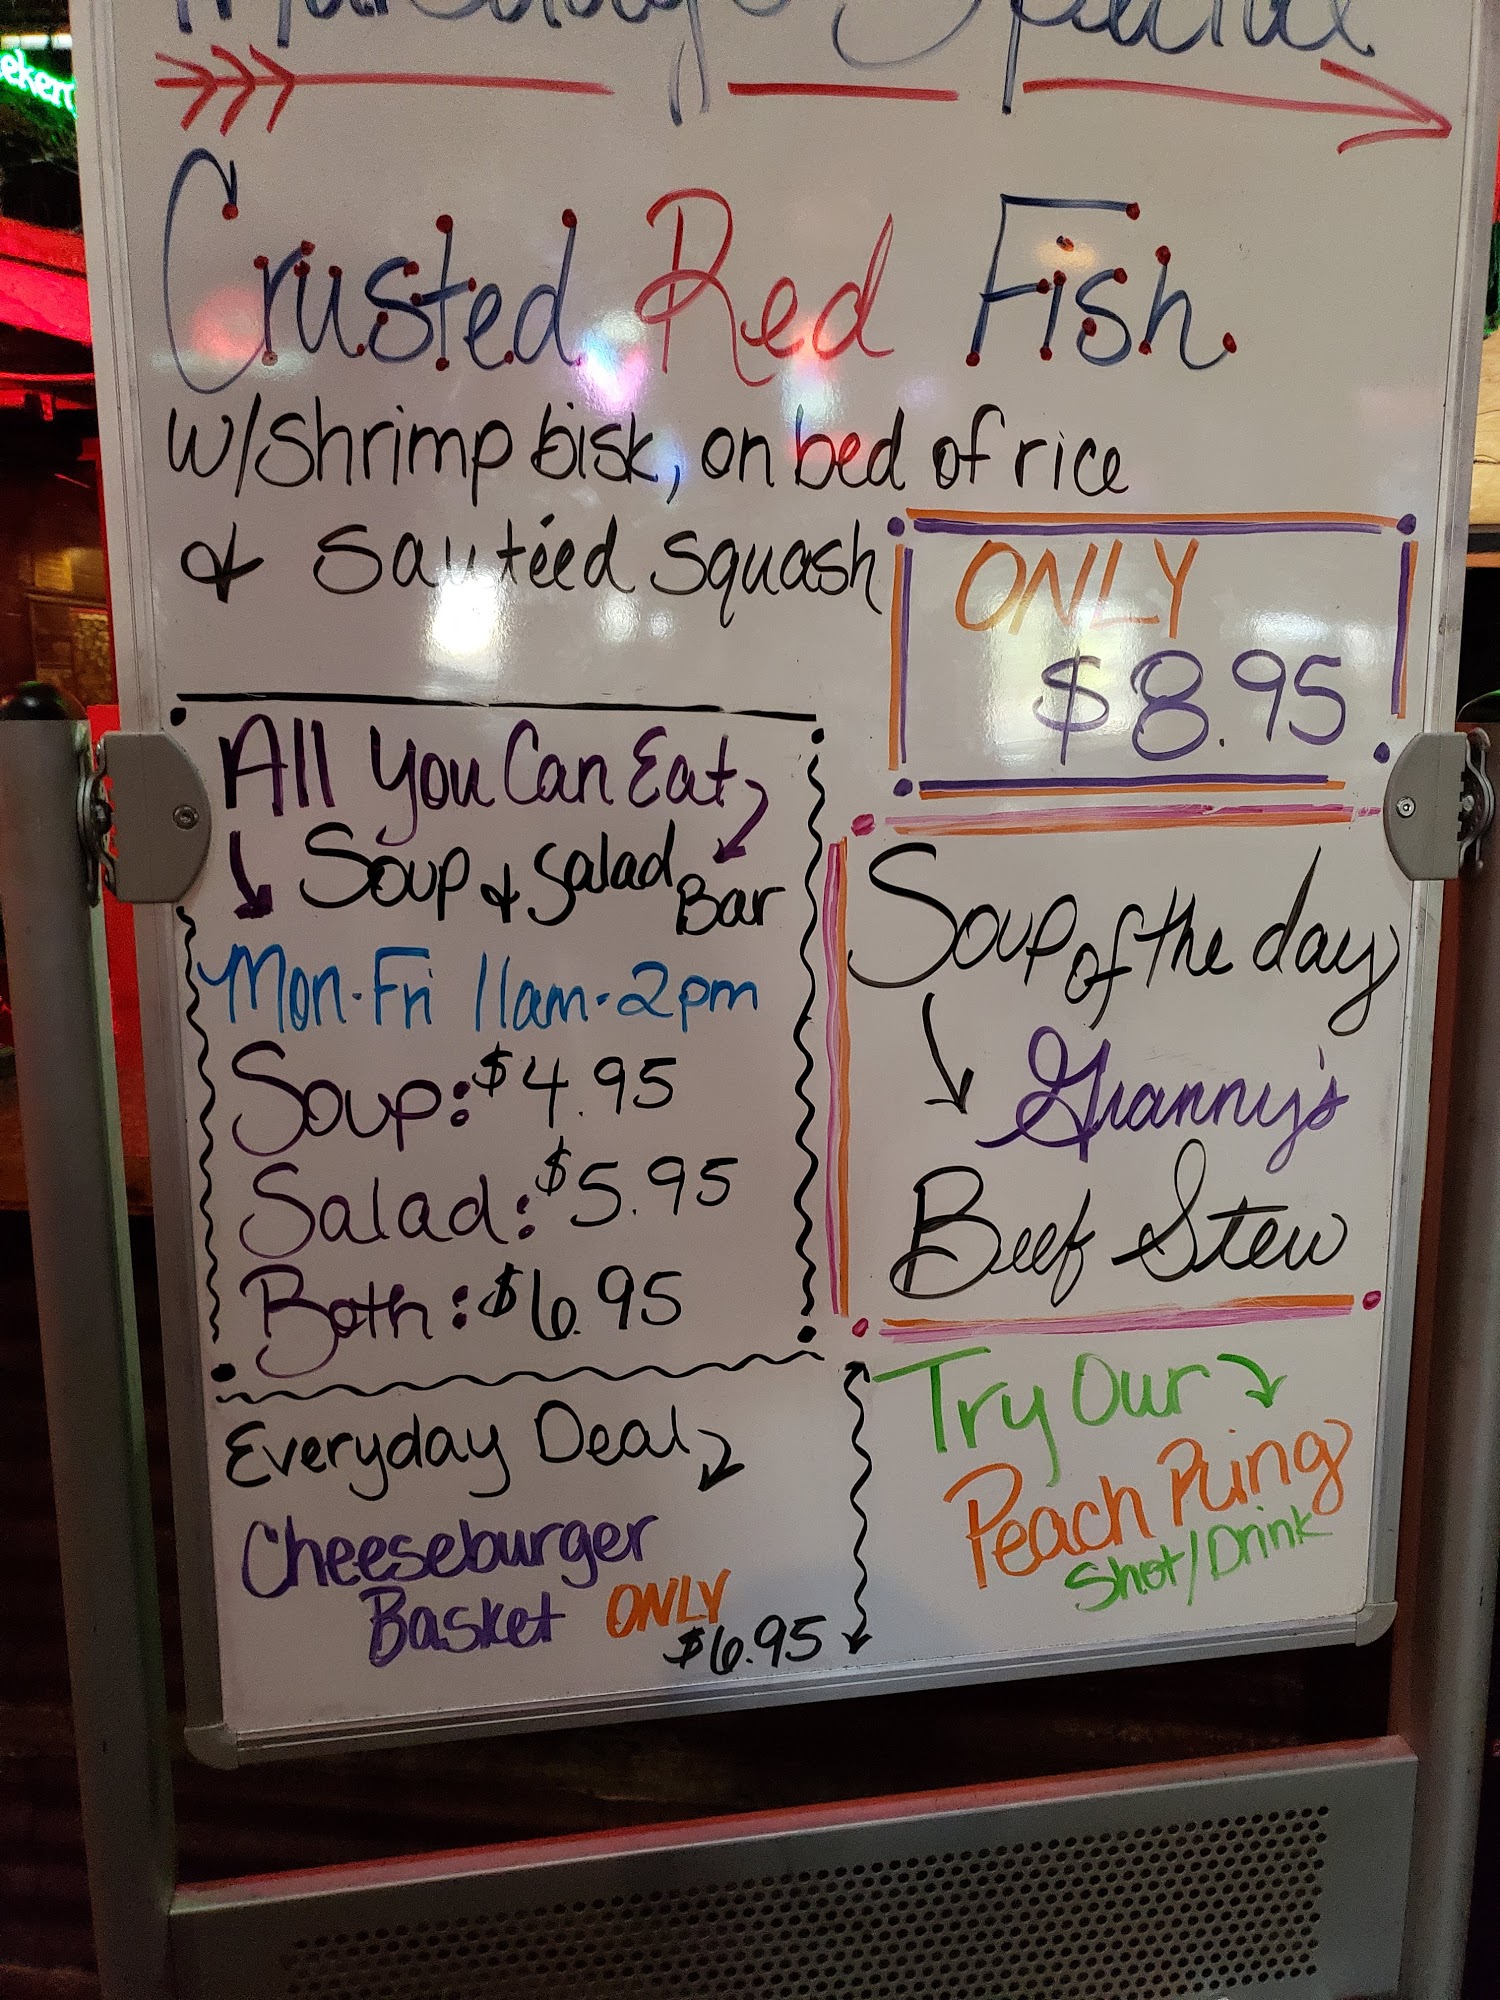 Special
Crusted Red Fish
w/shrimp bisk, on bed of rice
& sautéed squash
ONLY
$8.95
All You Can Eat
Soup & Salad
Bar
Mon-Fri 11am-2pm
Soup: $4.95
Salad: $5.95
Both: $6.95
Soup of the day
Granny's
Beef Stew
Everyday Deal
Cheeseburger
Basket ONLY
$6.95
Try Our
Peach Pling
Shot/Drink